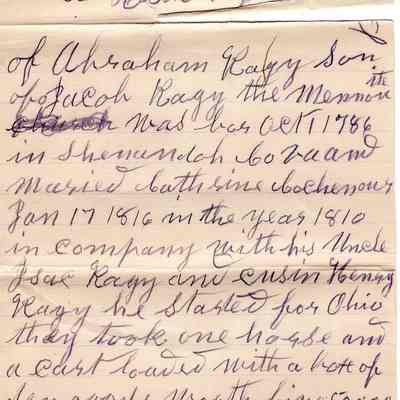 of Abraham Ragy son
of Jacob Ragy the Mennonite
church was bor OCT 1 1786
in Shenandoh Co va and
Maried Cathrine Cochenour
Jan 17 1816 in the year 1810
in company with his Uncle
Isac Ragy and cusin Henry
Ragy he started for Ohio
they took one horse and
a cart loaded with a box of